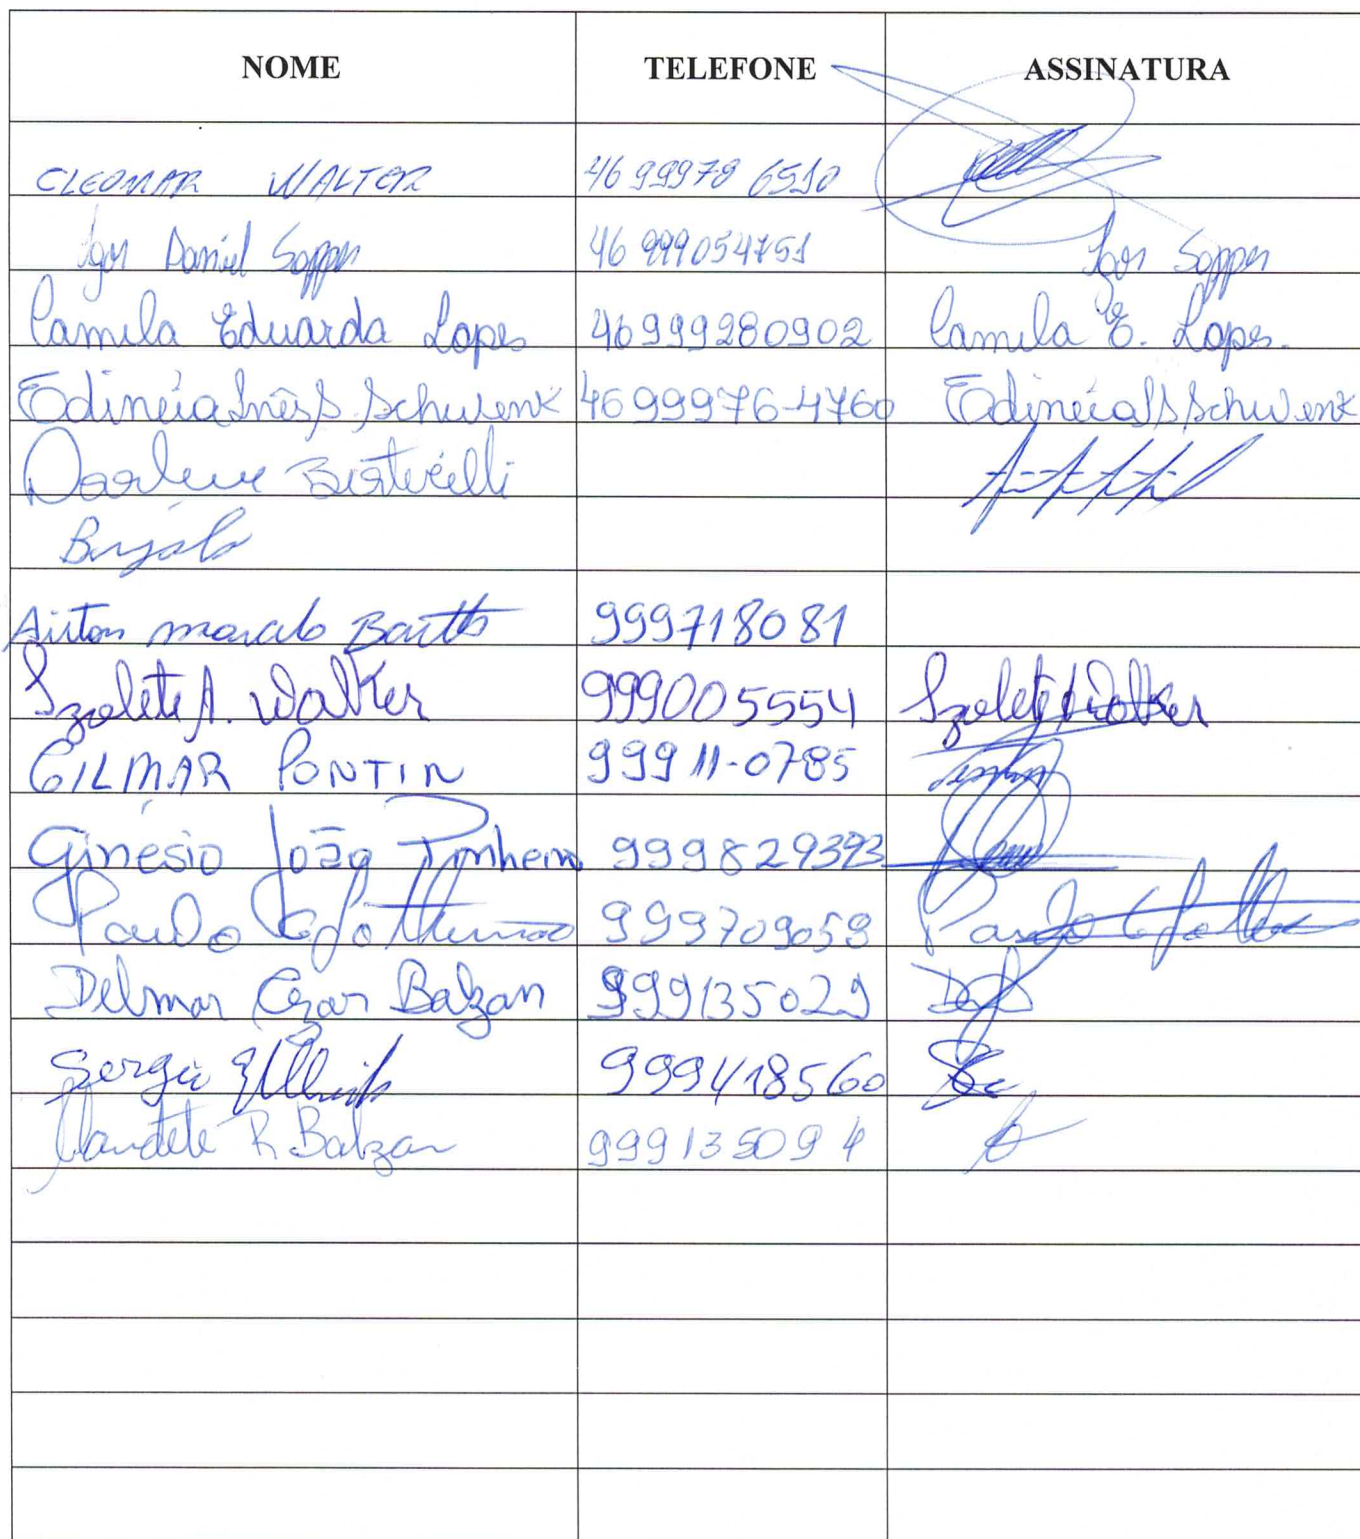 NOME TELEFONE ASSINATURA
CLEOMAR WALTER 46 99978 6510
Igor Daniel Sopper 46 999054751 Igor Sopper
Camila Eduarda Lopes 46999280902 Camila E. Lopes.
Edinéia Inês S Schwenk 46 99976-4760 Edinéia I S Schwenk
Darlene
Airton Barth 999718081
Izolete A. Walker 999005554 Izolete A Walker
GILMAR PONTIN 99911-0785
Ginésio João Pinheiro 999829393
Paulo 999709059 Paulo
Delmar Cezar Balzan 999135029
Sergio 999418560
Claudete R. Balzan 999135094